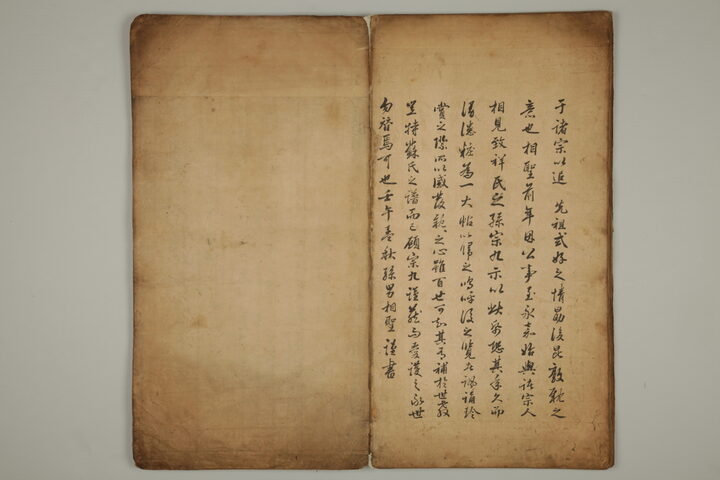 于諸宗以追 先祖式好之情勗後昆敦親之
意也相聖前年因公事至永嘉始與諸宗人
相見致祥民之孫宗九示以此卷恐其年久而
湮遂粧為一大帖以歸之嗚呼後之覽者諷誦玲
賞之際所以感發親親之心雖百世可知其有補於世教
豈特蘇氏之譜而已願宗九謹藏而愛護之永世
勿替焉可也壬午春秋孫男相聖謹書